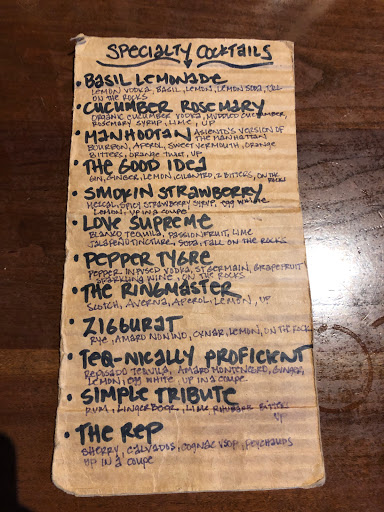 SPECIALTY COCKTAILS
• BASIL LEMONADE
LEMON VODKA, BASIL, LEMON, LEMON SODA, TALL
ON THE ROCKS
• CUCUMBER ROSEMARY
ORGANIC CUCUMBER VODKA, MUDDLED CUCUMBER,
ROSEMARY SYRUP, LIME, UP
• MANHOOTAN VERSION OF
THE MANHATTAN
BOURBON, APEROL, SWEET VERMOUTH, ORANGE
BITTERS, ORANGE TWIST, UP
• THE GOOD IDEA
GIN, GINGER, LEMON, CILANTRO, 2 BITTERS, ON THE
ROCKS
• SMOKIN STRAWBERRY
MEZCAL, SPICY STRAWBERRY SYRUP, EGG WHITE
LEMON, UP IN A COUPE
• LOVE SUPREME
BLANCO TEQUILA, PASSIONFRUIT, LIME
JALAPEÑO TINCTURE, SODA, TALL ON THE ROCKS
• PEPPER TYGRE
PEPPER INFUSED VODKA, ST GERMAIN, GRAPEFRUIT
SPARKLING WINE, ON THE ROCKS
• THE RINGMASTER
SCOTCH, AVERNA, APEROL, LEMON, UP
• ZIGGURAT
RYE, AMARO NONINO, CYNAR, LEMON, ON THE ROCKS
• TEQ-NICALLY PROFICIENT
REPOSADO TEQUILA, AMARO MONTENEGRO, GINGER,
LEMON, EGG WHITE UP IN A COUPE
• SIMPLE TRIBUTE
RUM, LIME RHUBARB BITTERS
UP
• THE REP
SHERRY, CALVADOS, COGNAC VSOP, PEYCHAUDS
UP IN A COUPE